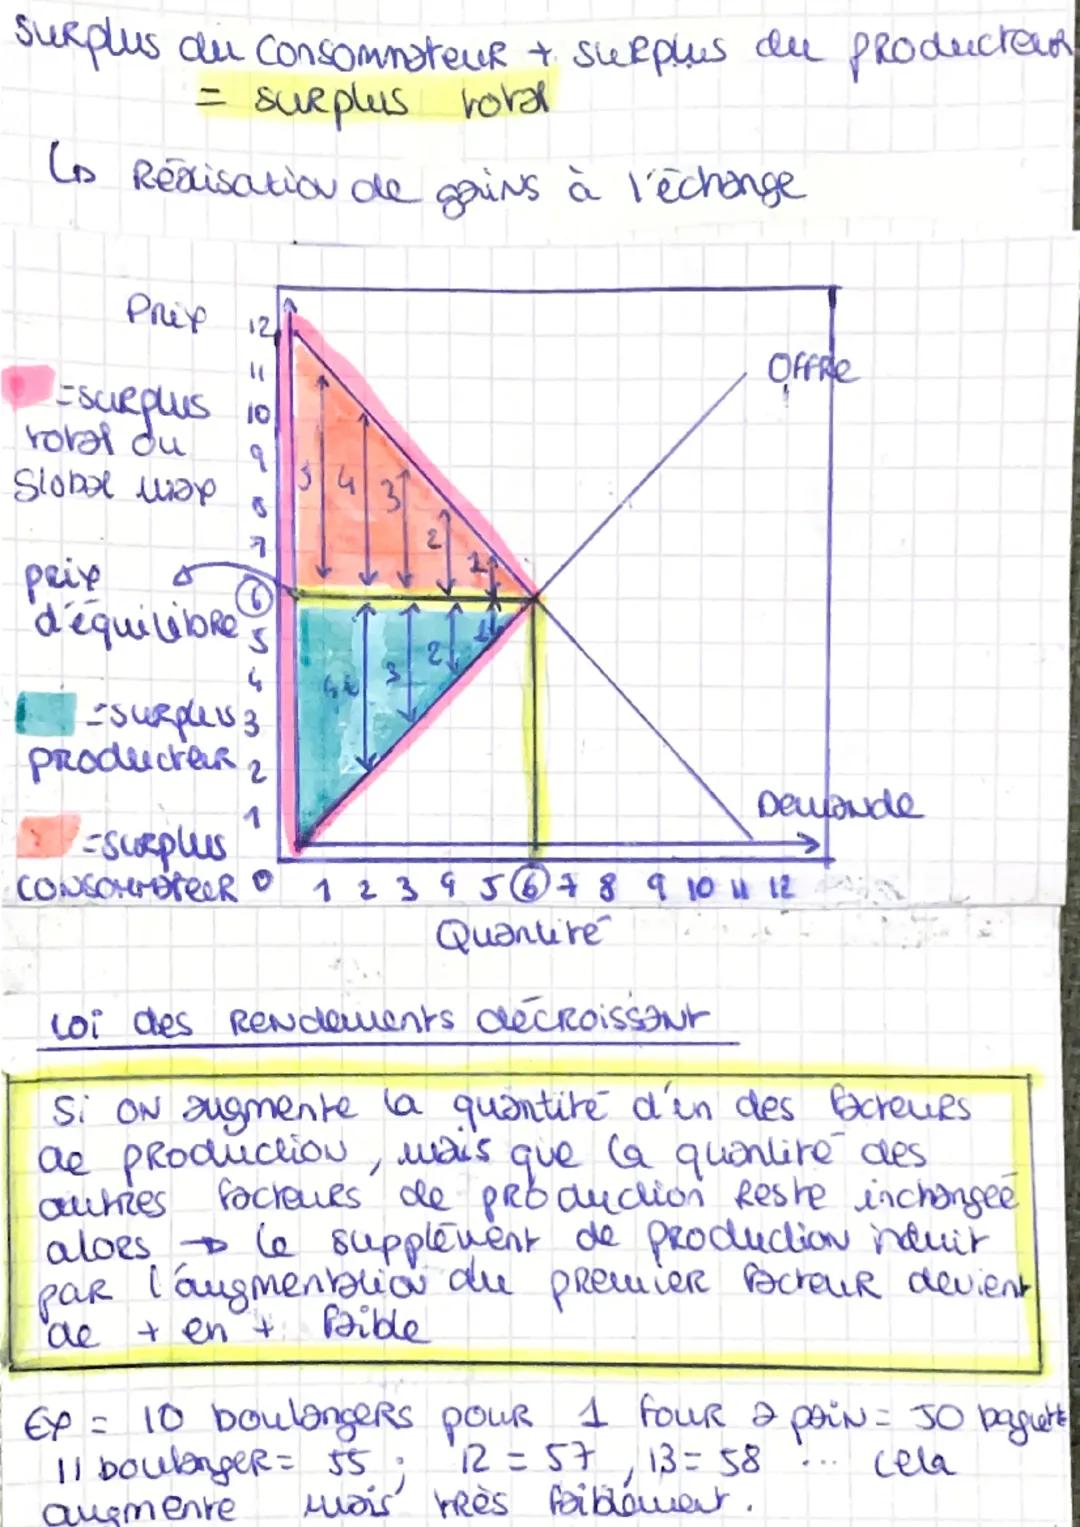 Surplus du consommateur + surplus du producteur
= surplus total
↳ Réalisation de gains à l'échange
Prix
12
11
10
9
8
7
6
5
4
3
2
1
0
= surplus
total ou
global max
prix
d'équilibre
= surplus
producteur
= surplus
consommateur
Offre
5 4 3 2 1
3 2 1
Demande
1 2 3 4 5 6 7 8 9 10 11 12
Quantité
Loi des rendements décroissant
Si on augmente la quantité d'un des facteurs
de production, mais que la quantité des
autres facteurs de production reste inchangée
alors → le supplément de production induit
par l'augmentation du premier facteur devient
de + en + faible
Ex = 10 boulangers pour 1 four à pain = 50 baguette
11 boulanger = 55 ; 12 = 57, 13 = 58 ... cela
augmente mais très faiblement.